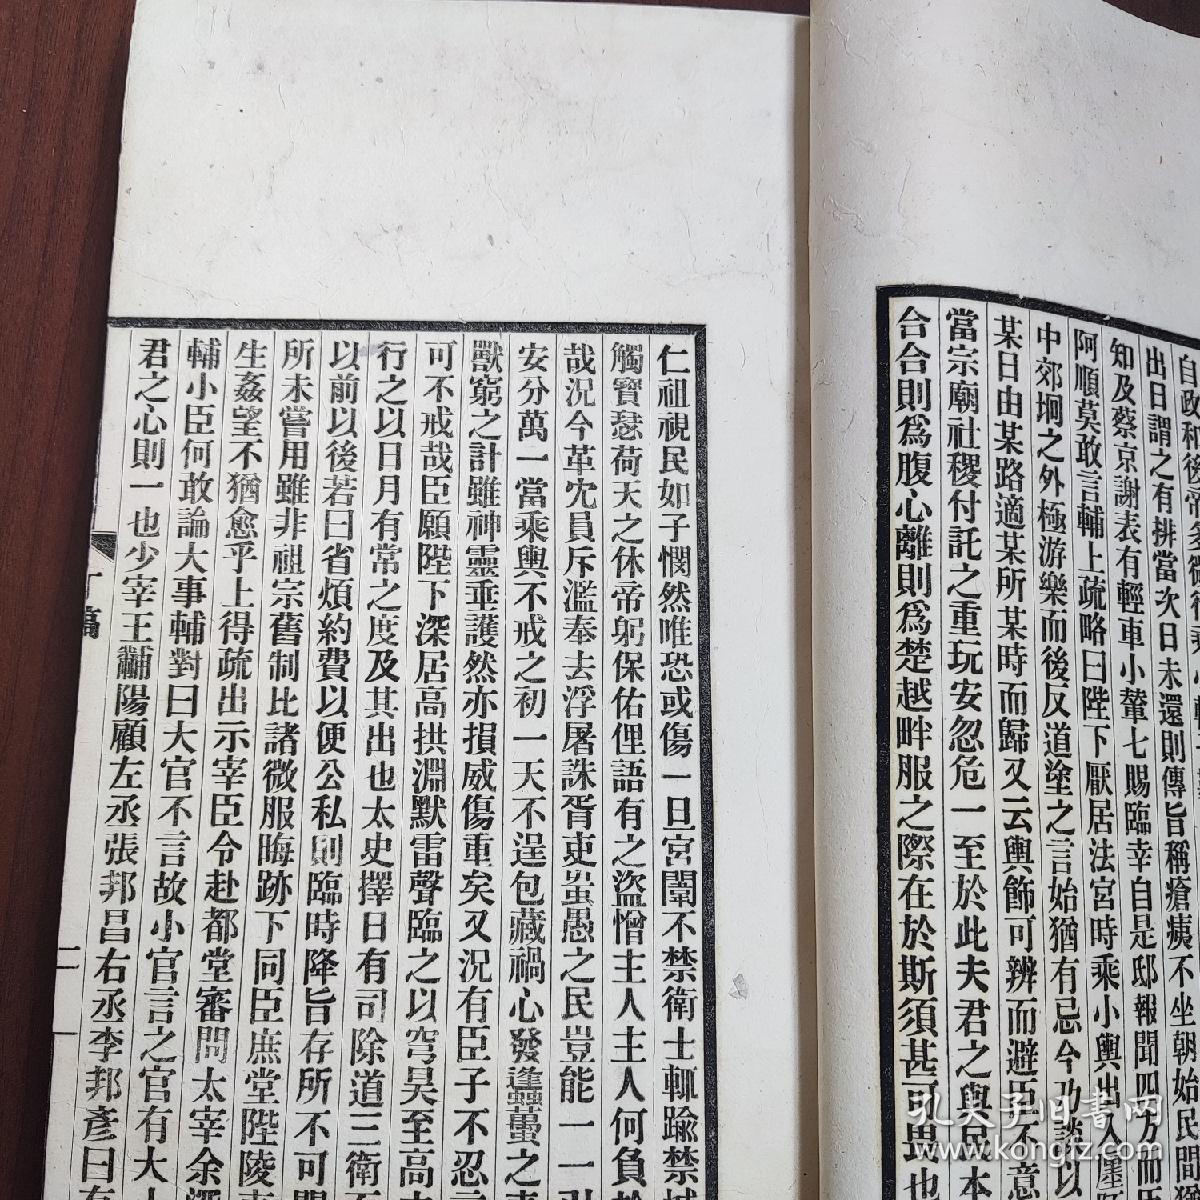 自政和後帝多微行
出日謂之有排當次日未還則傳旨稱瘡痍不坐朝始民間
知及蔡京謝表有輕車小輦七賜臨幸自是邸報聞四方而
阿順莫敢言輔上疏略曰陛下厭居法宮時乘小輿出入廛
中郊坰之外極游樂而後反道塗之言始猶有忌今乃談以
某日由某路適某所某時而歸又云輿飾可辨而避臣不意
當宗廟社稷付託之重玩安忽危一至於此夫君之與民本
合合則為腹心離則為楚越畔服之際在於斯須甚可畏也
仁祖視民如子憫然唯恐或傷一旦宮闈不禁衛士輒踰禁城
觸寶瑟荷天之休帝躬保佑俚語有之盜憎主人主人何負於
哉況今革冗員斥濫奉去浮屠誅胥吏蚩愚之民豈能一一引
安分萬一當乘輿不戒之初一夫不逞包藏禍心發蠭蠆之
獸窮之計雖神靈垂護然亦損威傷重矣又況有臣子不忍
可不戒哉臣願陛下深居高拱淵默雷聲臨之以穹昊至高
行之以日月有常之度及其出也太史擇日有司除道三衛
以前以後若曰省煩約費以便公私則臨時降旨存所不可
所未嘗用雖非祖宗舊制比諸微服晦跡下同臣庶堂陛陵
生姦望不猶愈乎上得疏出示宰臣令赴都堂審問太宰余深
輔小臣何敢論大事輔對曰大官不言故小官言之官有大
君之心則一也少宰王黼陽顧左丞張邦昌右丞李邦彥曰有
丁稿
二
孔夫子旧书网
www.kongfz.com